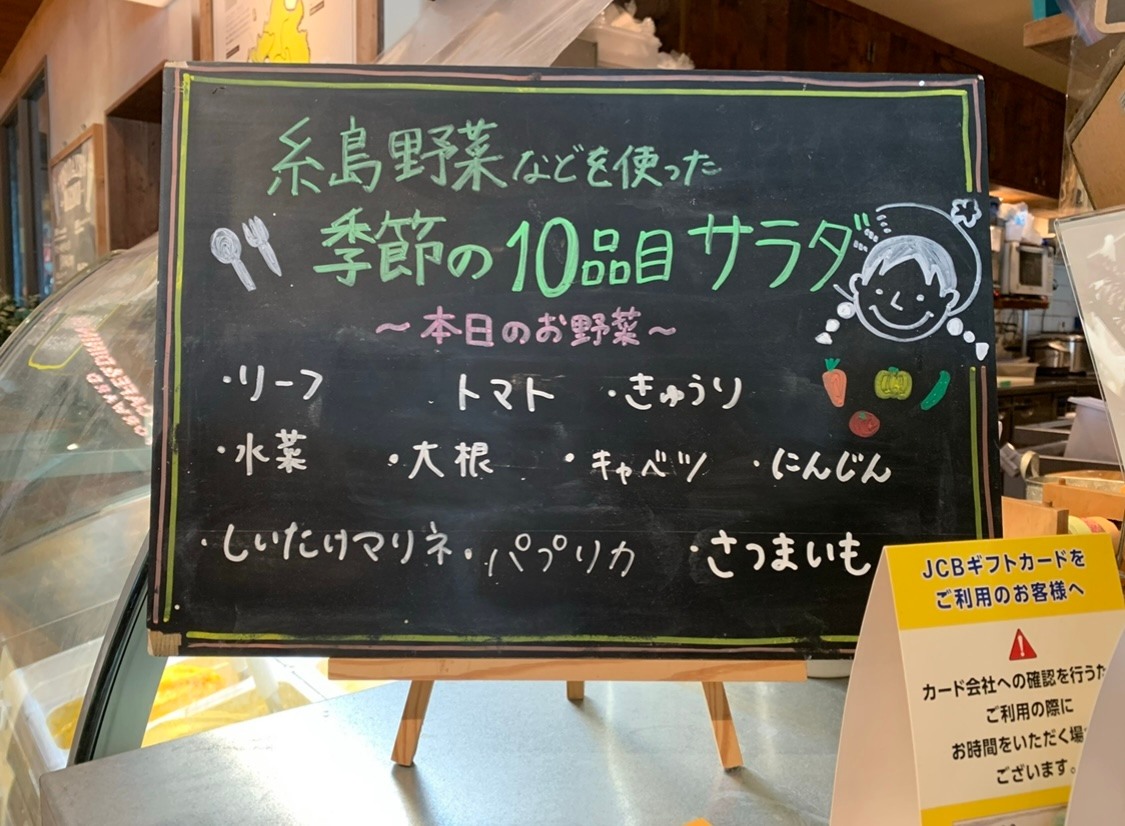 糸島野菜などを使った
季節の10品目サラダ
～本日のお野菜～
・リーフ トマト ・きゅうり
・水菜 ・大根 ・キャベツ ・にんじん
・しいたけマリネ ・パプリカ ・さつまいも
JCBギフトカードを
ご利用のお客様へ
カード会社への確認を行うた
ご利用の際に
お時間をいただく場
ございます。